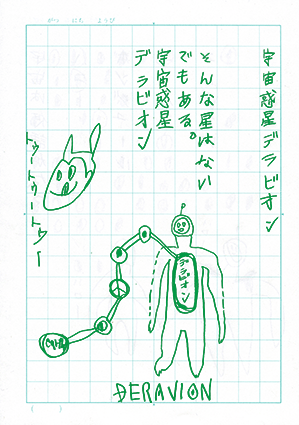 がつ にち ようび
宇宙惑星デラビオン
そんな星はない
でもある。
宇宙惑星
デラビオン
トゥートゥートゥー
デラビオン
DERAVION